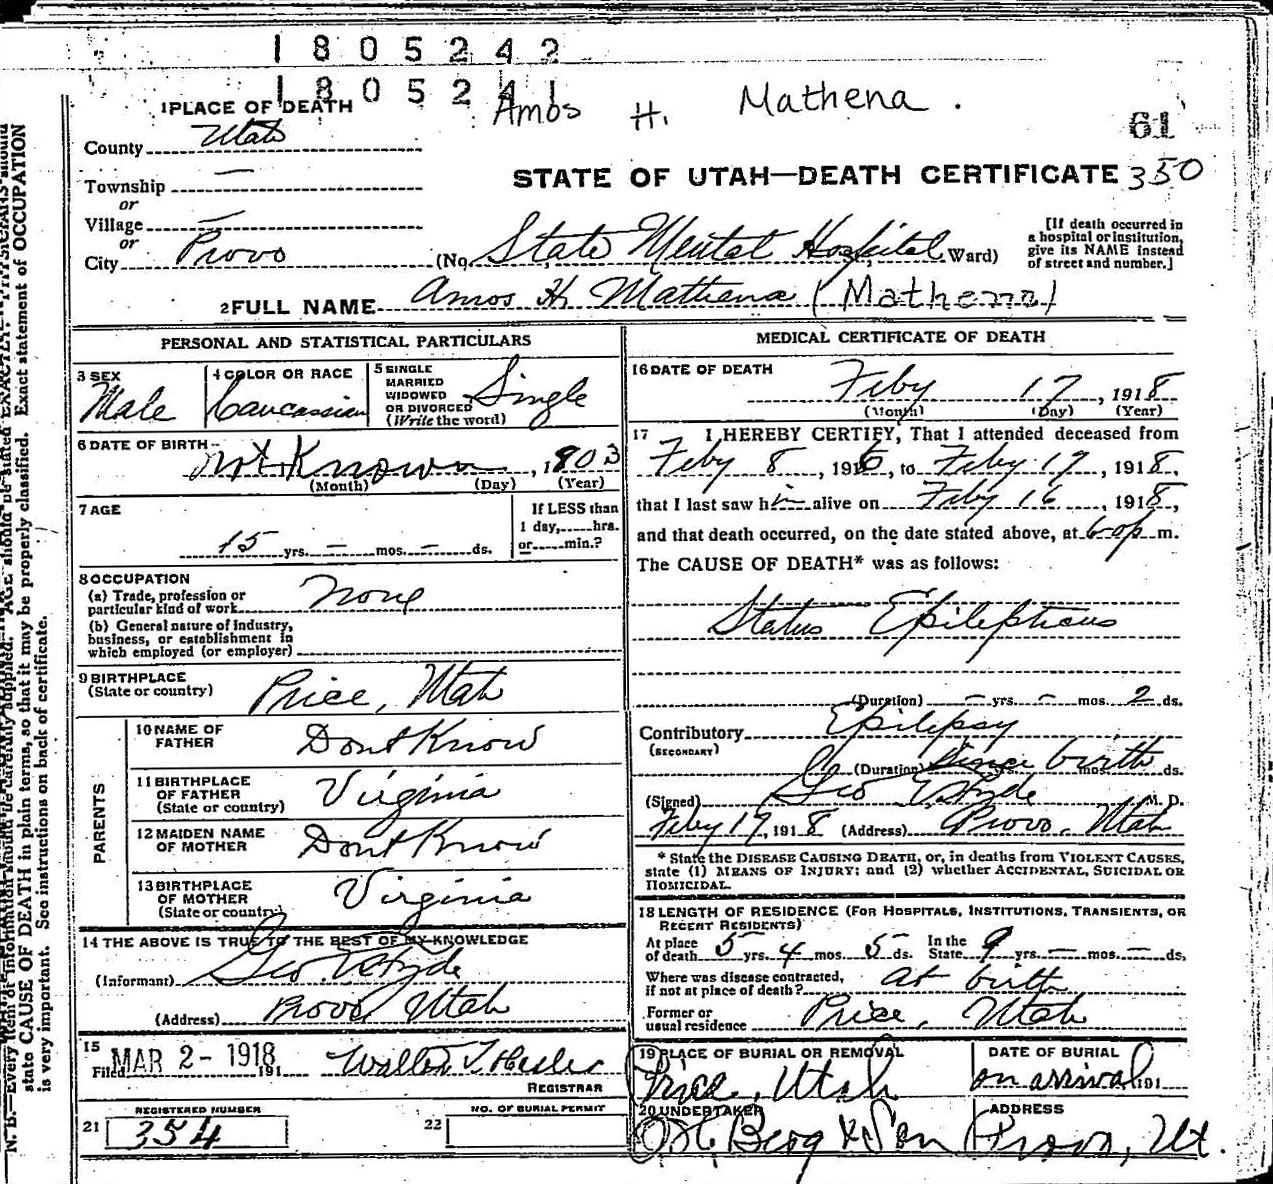 1805242
1805241
Amos H. Mathena.
61
350
1 PLACE OF DEATH
County Utah
Township —
or
Village —
or
City Provo
STATE OF UTAH—DEATH CERTIFICATE
(No. State Mental Hospital, Ward)
[If death occurred in
a hospital or institution,
give its NAME instead
of street and number.]
2 FULL NAME Amos H. Mathena (Mathena)
PERSONAL AND STATISTICAL PARTICULARS
3 SEX
Male
4 COLOR OR RACE
Caucassian
5 SINGLE
MARRIED
WIDOWED
OR DIVORCED
(Write the word)
Single
6 DATE OF BIRTH
not Known, 1903
(Month) (Day) (Year)
7 AGE
15 yrs. — mos. — ds.
If LESS than
1 day, hrs.
or min.?
8 OCCUPATION
(a) Trade, profession or
particular kind of work None
(b) General nature of industry,
business, or establishment in
which employed (or employer)
9 BIRTHPLACE
(State or country) Price, Utah
PARENTS
10 NAME OF
FATHER Dont Know
11 BIRTHPLACE
OF FATHER
(State or country) Virginia
12 MAIDEN NAME
OF MOTHER Dont Know
13 BIRTHPLACE
OF MOTHER
(State or country) Virginia
14 THE ABOVE IS TRUE TO THE BEST OF MY KNOWLEDGE
(Informant) Geo E Hyde
(Address) Provo, Utah
15
Filed MAR 2 - 1918 191
REGISTRAR
REGISTERED NUMBER
21 354
NO. OF BURIAL PERMIT
22
MEDICAL CERTIFICATE OF DEATH
16 DATE OF DEATH
Feby 17, 1918
(Month) (Day) (Year)
17 I HEREBY CERTIFY, That I attended deceased from
Feby 8, 1916, to Feby 17, 1918,
that I last saw him alive on Feby 16, 1918,
and that death occurred, on the date stated above, at 6-0p m.
The CAUSE OF DEATH* was as follows:
Status Epilepticus
(Duration) — yrs. — mos. 2 ds.
Contributory Epilepsy
(SECONDARY)
(Duration) Since birth yrs. mos. ds.
(Signed) Geo E Hyde M. D.
Feby 19, 1918 (Address) Provo, Utah
* State the DISEASE CAUSING DEATH, or, in deaths from VIOLENT CAUSES,
state (1) MEANS OF INJURY; and (2) whether ACCIDENTAL, SUICIDAL OR
HOMICIDAL.
18 LENGTH OF RESIDENCE (FOR HOSPITALS, INSTITUTIONS, TRANSIENTS, OR
RECENT RESIDENTS)
At place
of death 5 yrs. 4 mos. 5 ds. In the
State 9 yrs. — mos. — ds.
Where was disease contracted,
if not at place of death? at birth
Former or
usual residence Price, Utah
19 PLACE OF BURIAL OR REMOVAL
Price, Utah
DATE OF BURIAL
on arrival 191
20 UNDERTAKER
Berg & Son
ADDRESS
Provo, Ut.
state CAUSE OF DEATH in plain terms, so that it may be properly classified. Exact statement of OCCUPATION
is very important. See instructions on back of certificate.